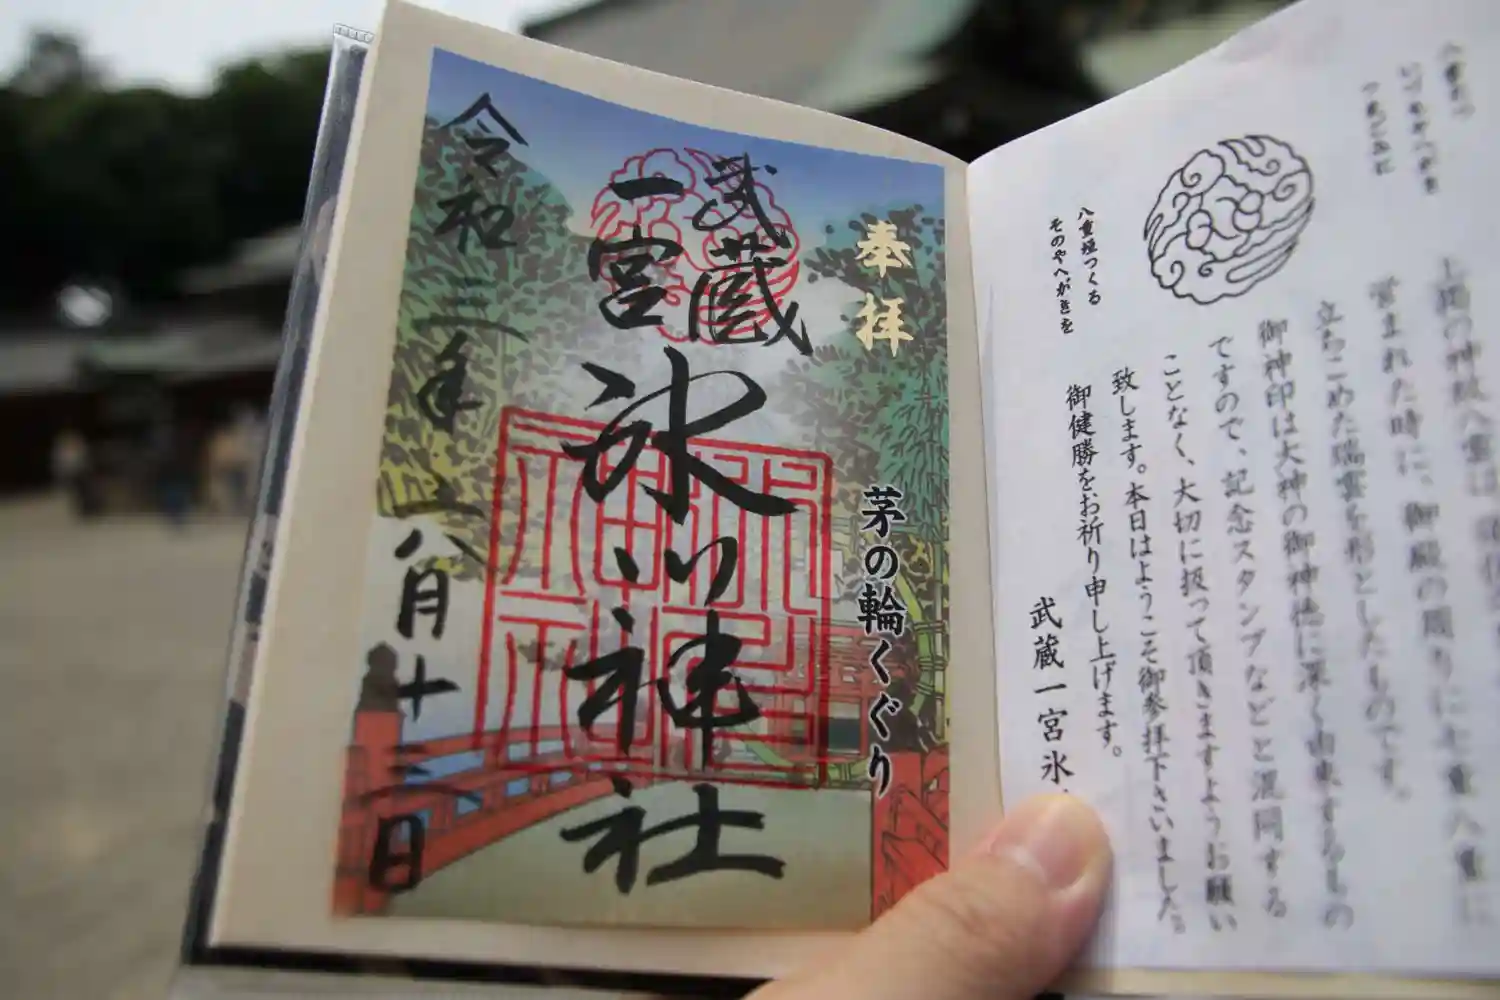 八雲たつ
いづもやへがき
つまごみに
八重垣つくる
そのやへがきを
上掲の神紋八雲は
営まれた時に、御殿の周りに七重八重に
立ちこめた瑞雲を形としたものです。
御神印は大神の御神徳に深く由来するもの
ですので、記念スタンプなどと混同する
ことなく、大切に扱って頂きますようお願い
致します。本日はようこそ御参拝下さいました。
御健勝をお祈り申し上げます。
武蔵一宮氷
奉拝
茅の輪くぐり
武蔵
一宮
氷川神社
令和三年八月十三日